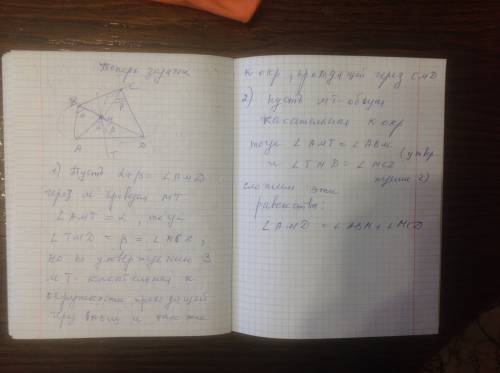 Теперь задача
B
C
M
β
A
D
T
1) Пусть α+β = ∠AMD
через M проведем MT
∠AMT = α, тогда
∠TMD = β =
но по утверждению 3
MT - касательная к
окружности проходящей
через и также
к окр, проходящей через CMD
2) Пусть MT - общая
касательная к окр
тогда ∠AMT = ∠ABM
и ∠TMD = ∠MCD
(утвер-
ждение 2)
сложим эти
равенства:
∠AMD = ∠ABM + ∠MCD